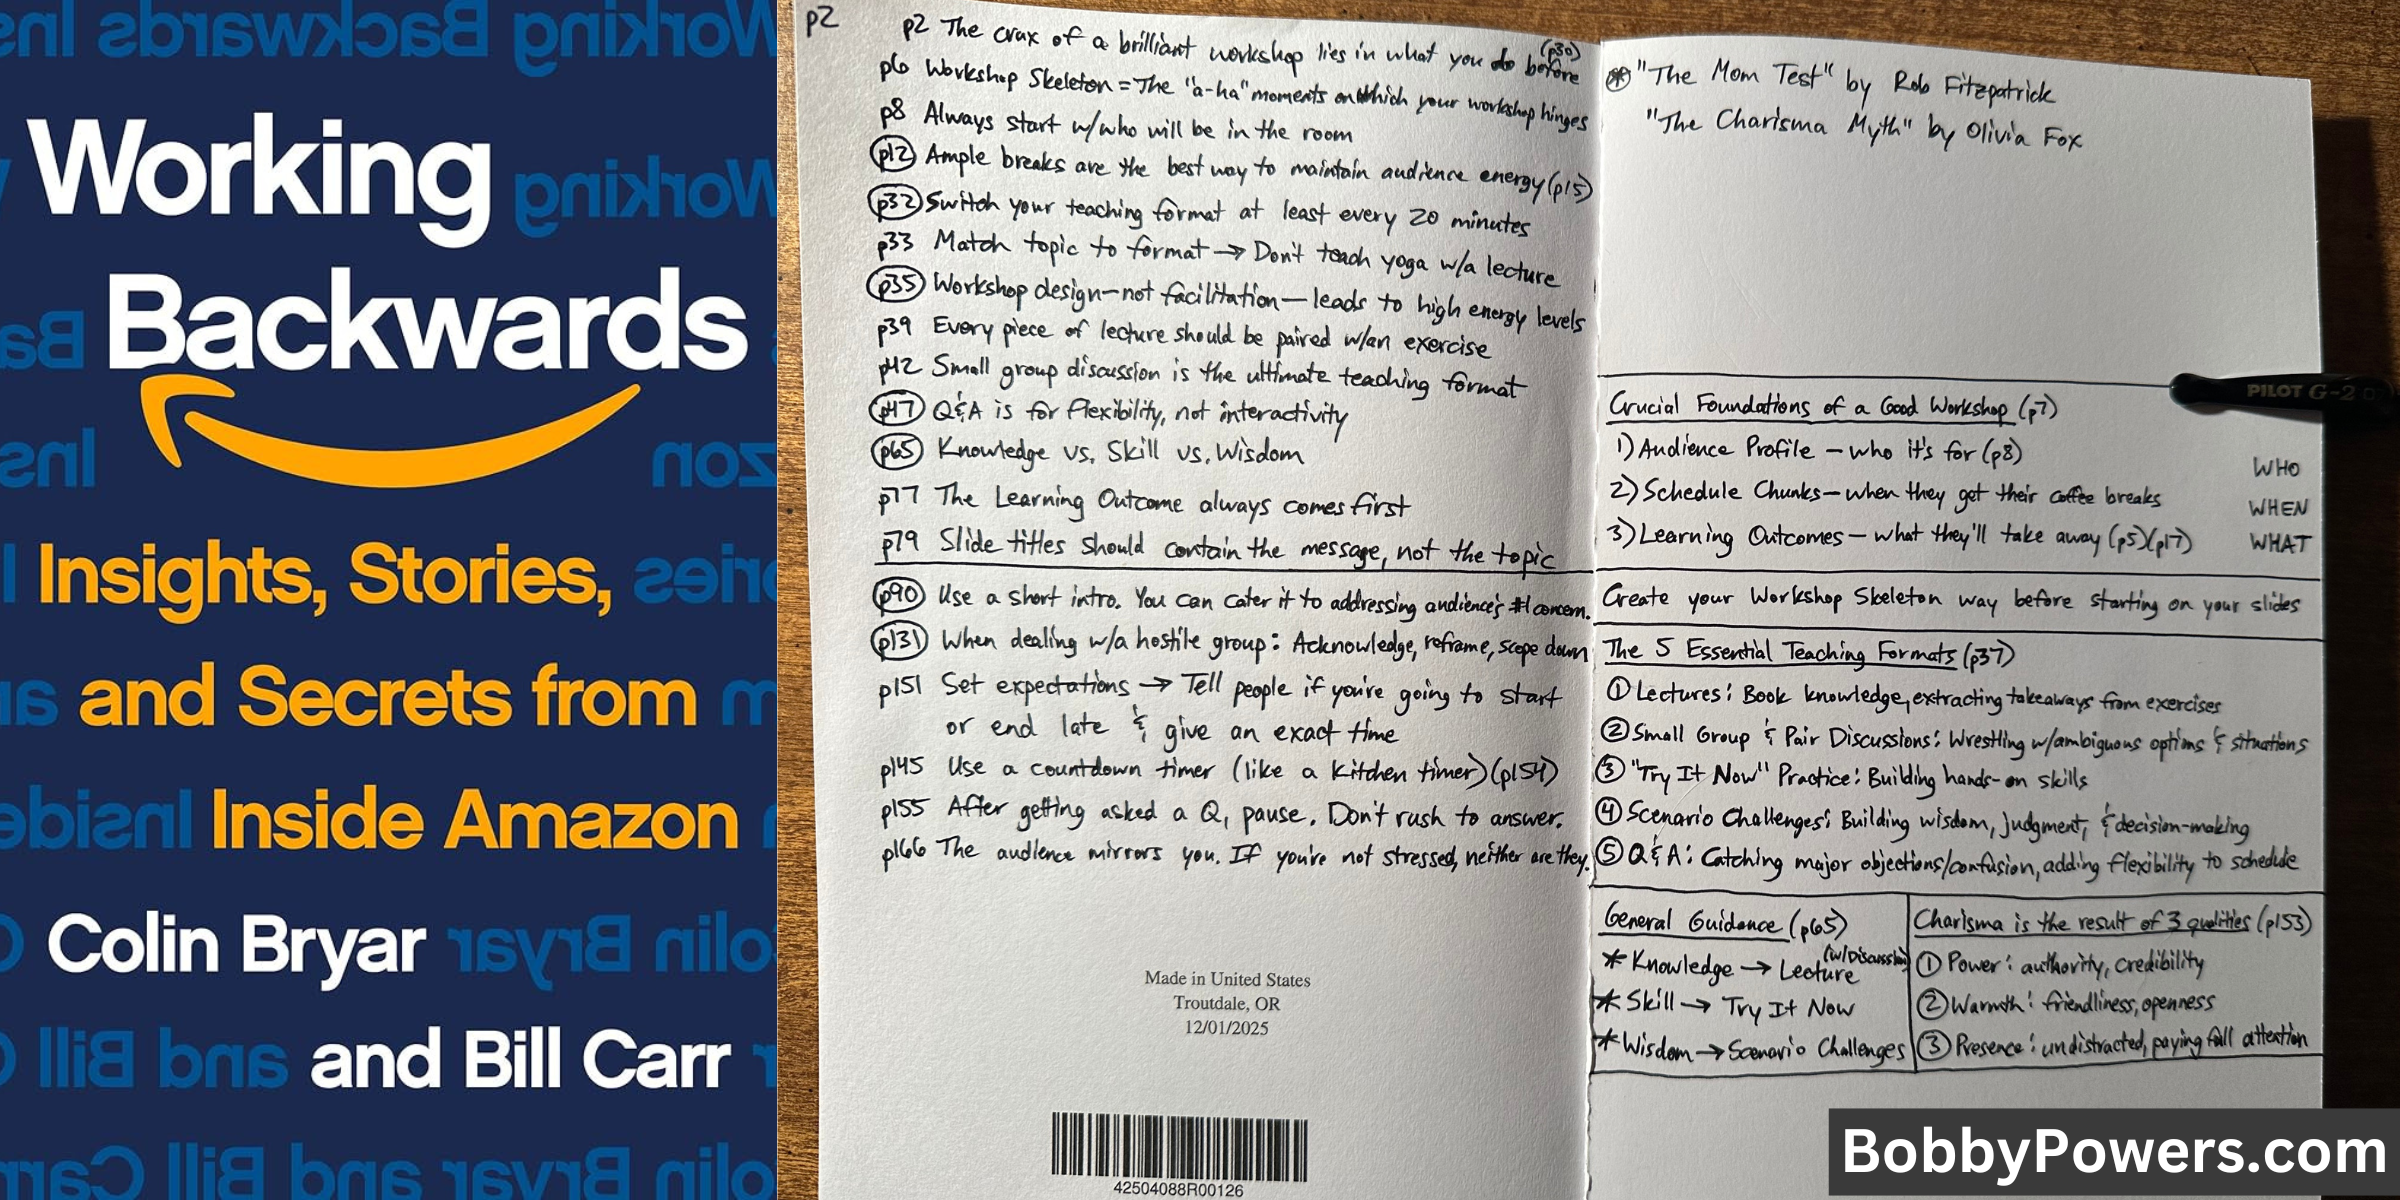 Working
Backwards
Insights, Stories,
and Secrets from
Inside Amazon
Colin Bryar
and Bill Carr
p2
p2 The crux of a brilliant workshop lies in what you do before (p30)
p6 Workshop Skeleton = The "a-ha" moments on which your workshop hinges
p8 Always start w/who will be in the room
p12 Ample breaks are the best way to maintain audience energy (p15)
p32 Switch your teaching format at least every 20 minutes
p33 Match topic to format → Don't teach yoga w/a lecture
p35 Workshop design—not facilitation—leads to high energy levels
p39 Every piece of lecture should be paired w/an exercise
p42 Small group discussion is the ultimate teaching format
p47 Q&A is for flexibility, not interactivity
p65 Knowledge vs. Skill vs. Wisdom
p77 The Learning Outcome always comes first
p79 Slide titles should contain the message, not the topic
p90 Use a short intro. You can cater it to addressing audience's #1 concern.
p131 When dealing w/a hostile group: Acknowledge, reframe, scope down
p151 Set expectations → Tell people if you're going to start
or end late & give an exact time
p145 Use a countdown timer (like a kitchen timer) (p154)
p155 After getting asked a Q, pause. Don't rush to answer.
p166 The audience mirrors you. If you're not stressed, neither are they.
Made in United States
Troutdale, OR
12/01/2025
42504088R00126
* "The Mom Test" by Rob Fitzpatrick
"The Charisma Myth" by Olivia Fox
PILOT G-2
Crucial Foundations of a Good Workshop (p7)
1) Audience Profile – who it's for (p8) WHO
2) Schedule Chunks – when they get their coffee breaks WHEN
3) Learning Outcomes – what they'll take away (p5)(p17) WHAT
Create your Workshop Skeleton way before starting on your slides
The 5 Essential Teaching Formats (p37)
① Lectures: Book knowledge, extracting takeaways from exercises
② Small Group & Pair Discussions: Wrestling w/ambiguous options & situations
③ "Try It Now" Practice: Building hands-on skills
④ Scenario Challenges: Building wisdom, judgment, & decision-making
⑤ Q&A: Catching major objections/confusion, adding flexibility to schedule
General Guidance (p65)
* Knowledge → Lecture (w/Discussion)
* Skill → Try It Now
* Wisdom → Scenario Challenges
Charisma is the result of 3 qualities (p153)
① Power: authority, credibility
② Warmth: friendliness, openness
③ Presence: undistracted, paying full attention
BobbyPowers.com